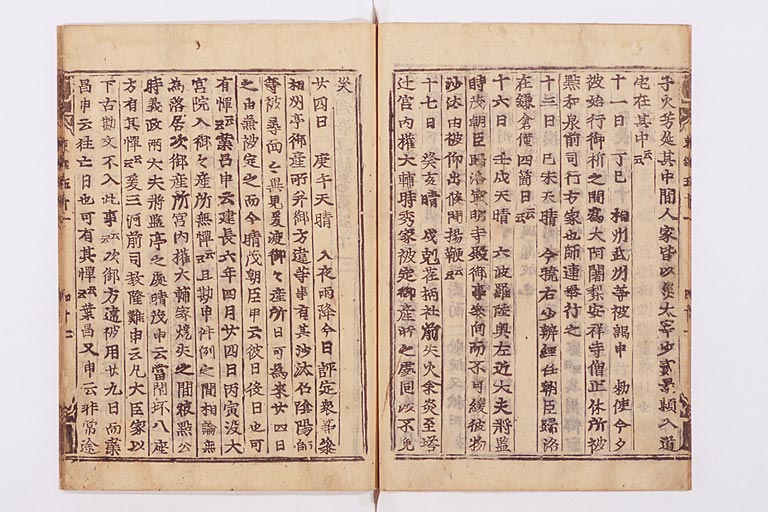 子火若延其中間人家皆以災太宰少貳景頼入道
宅在其中云云
十一日 丁巳 相州武州等被謁申 勅使今夕
被始行御祈之間 大阿闍梨安祥寺僧正休所被
點和泉前司行方家也師連奉行之
十三日 己未天晴 今曉右少辨經任朝臣歸洛
在鎌倉僅四箇日云云
十六日 壬戌天晴 六波羅陸奥左近大夫將監
時茂朝臣歸洛 最明寺殿御事參向而不可緩被
沙汰由被仰出條閇揚鞭云云
十七日 癸亥晴 戌剋 前失火余炎至塔
辻宮内權大輔時秀家被定御産所之處回以不免
災
廿四日 庚午天晴 入夜雨降今日評定衆等參
相州亭御産所并御方違等事有其沙汰召陰陽
等被尋面々異見爰渡御々産所日可爲來廿四日
之由兼被定之而今晴茂朝臣申云彼日後日也可
有憚云云業昌申云建長六年四月廿四日丙寅渡大
宮院入御々産所無憚云云且勘申件例之間相論無
爲落居次御産所宮内權大輔家燒失之間被點
時義政兩大夫將監亭之處晴茂申云當閇坏八座
方有其憚云云爰三河前司教隆難申云凡大臣家以
下古勘文不入此事云云次御方違被用廿九日而業
昌申云往亡日也可有其憚云云業昌又申云非常途